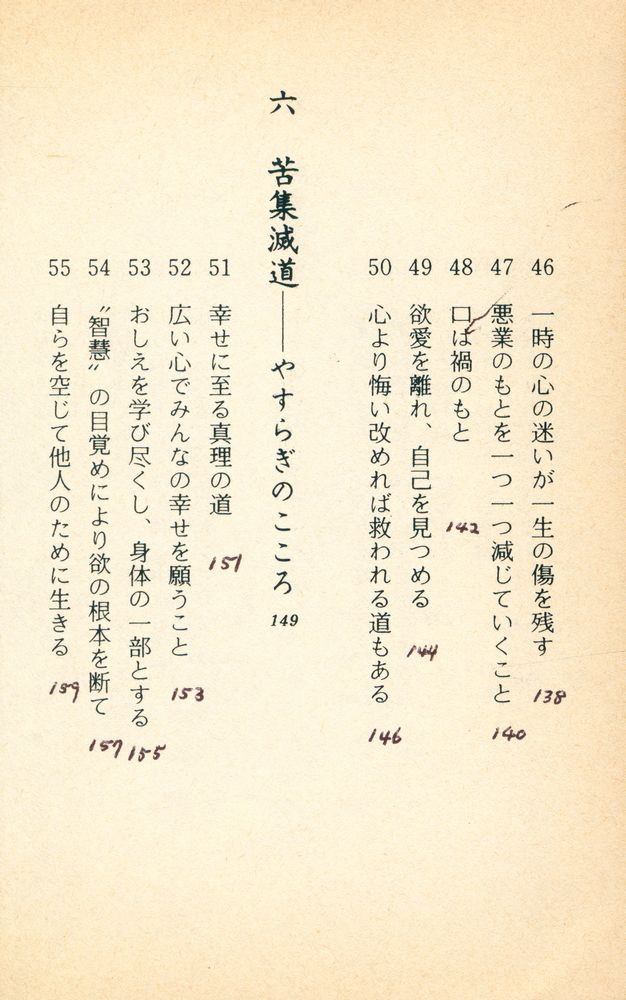 46 一時の心の迷いが一生の傷を残す 138
47 悪業のもとを一つ一つ減じていくこと 140
48 口は禍のもと 142
49 欲愛を離れ、自己を見つめる 144
50 心より悔い改めれば救われる道もある 146
六 苦集滅道——やすらぎのこころ 149
51 幸せに至る真理の道 151
52 広い心でみんなの幸せを願うこと 153
53 おしえを学び尽くし、身体の一部とする 155
54 〝智慧〟の目覚めにより欲の根本を断て 157
55 自らを空じて他人のために生きる 159